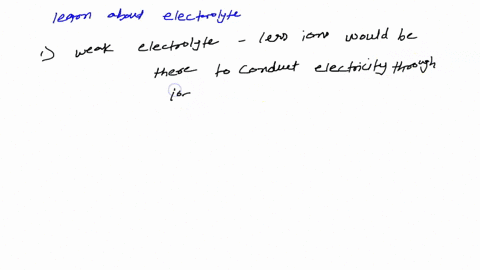 learn about electrolyte
1) weak electrolyte - less ions would be
there to conduct electricity through
ion